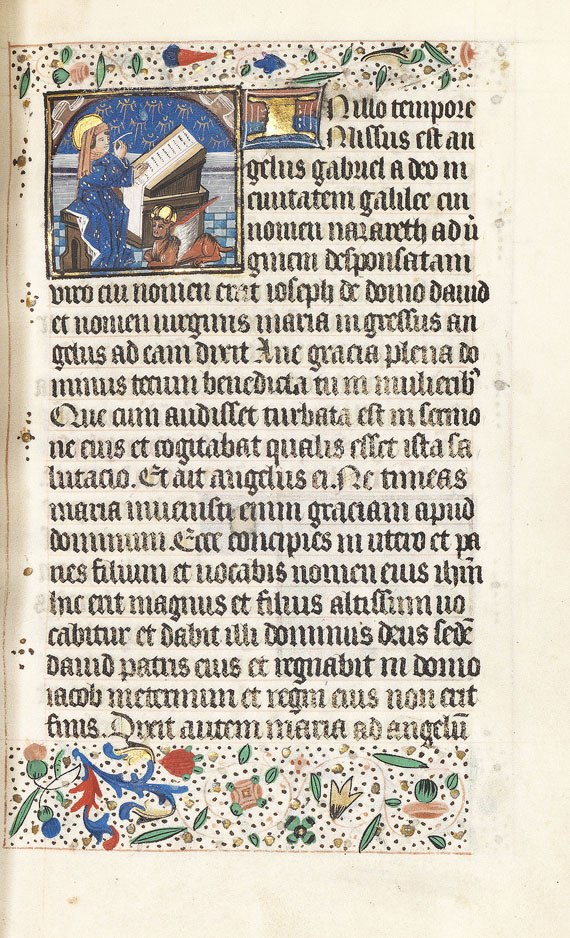 IN illo tempore
Missus est an
gelus gabriel a deo in
ciuitatem galilee cui
nomen nazareth ad ũ
ginem desponsatam
viro cui nomen erat ioseph de domo dauid
et nomen uirginis maria ingressus an
gelus ad eam dixit Aue gracia plena do
minus tecum benedicta tu in mulierib9
Que cum audisset turbata est in sermo
ne eius et cogitabat qualis esset ista sa
lutacio. Et ait angelus ei. Ne timeas
maria inuenisti enim graciam apud
dominum. Ecce concipies in utero et pa
ries filium et uocabis nomen eius ihm̃
hic erit magnus et filius altissimi uo
cabitur et dabit illi dominus deus sedẽ
dauid patris eius et regnabit in domo
iacob ineternum et regni eius non erit
finis. Dixit autem maria ad angelũ